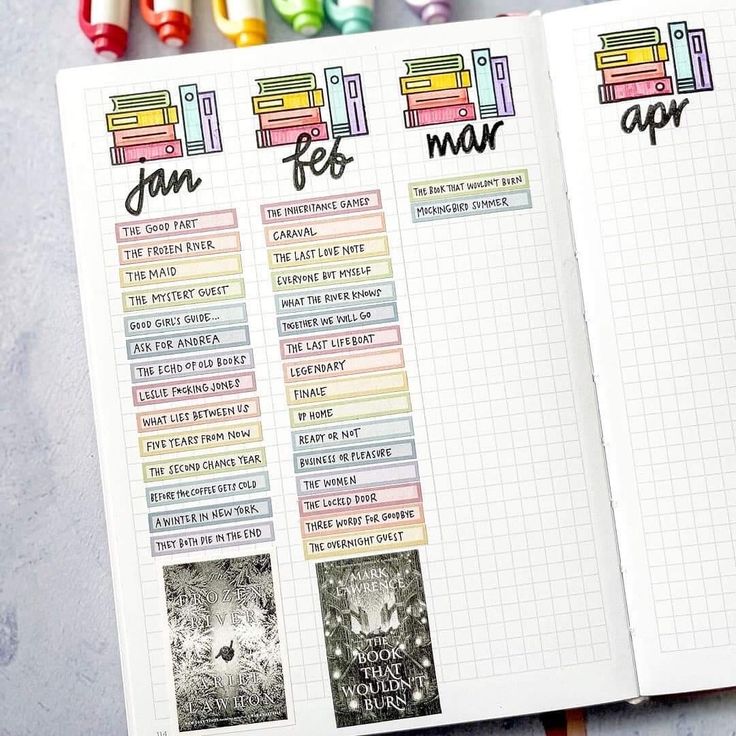 jan
THE GOOD PART
THE FROZEN RIVER
THE MAID
THE MYSTERY GUEST
GOOD GIRL'S GUIDE...
ASK FOR ANDREA
THE ECHO OF OLD BOOKS
LESLIE F*CKING JONES
WHAT LIES BETWEEN US
FIVE YEARS FROM NOW
THE SECOND CHANCE YEAR
BEFORE THE COFFEE GETS COLD
A WINTER IN NEW YORK
THEY BOTH DIE IN THE END
The
FROZEN
RIVER
ARIEL
LAWHON
114
feb
THE INHERITANCE GAMES
CARAVAL
THE LAST LOVE NOTE
EVERYONE BUT MYSELF
WHAT THE RIVER KNOWS
TOGETHER WE WILL GO
THE LAST LIFEBOAT
LEGENDARY
FINALE
UP HOME
READY OR NOT
BUSINESS OR PLEASURE
THE WOMEN
THE LOCKED DOOR
THREE WORDS FOR GOODBYE
THE OVERNIGHT GUEST
MARK
LAWRENCE
THE
BOOK
THAT
WOULDN'T
BURN
mar
THE BOOK THAT WOULDN'T BURN
MOCKINGBIRD SUMMER
apr